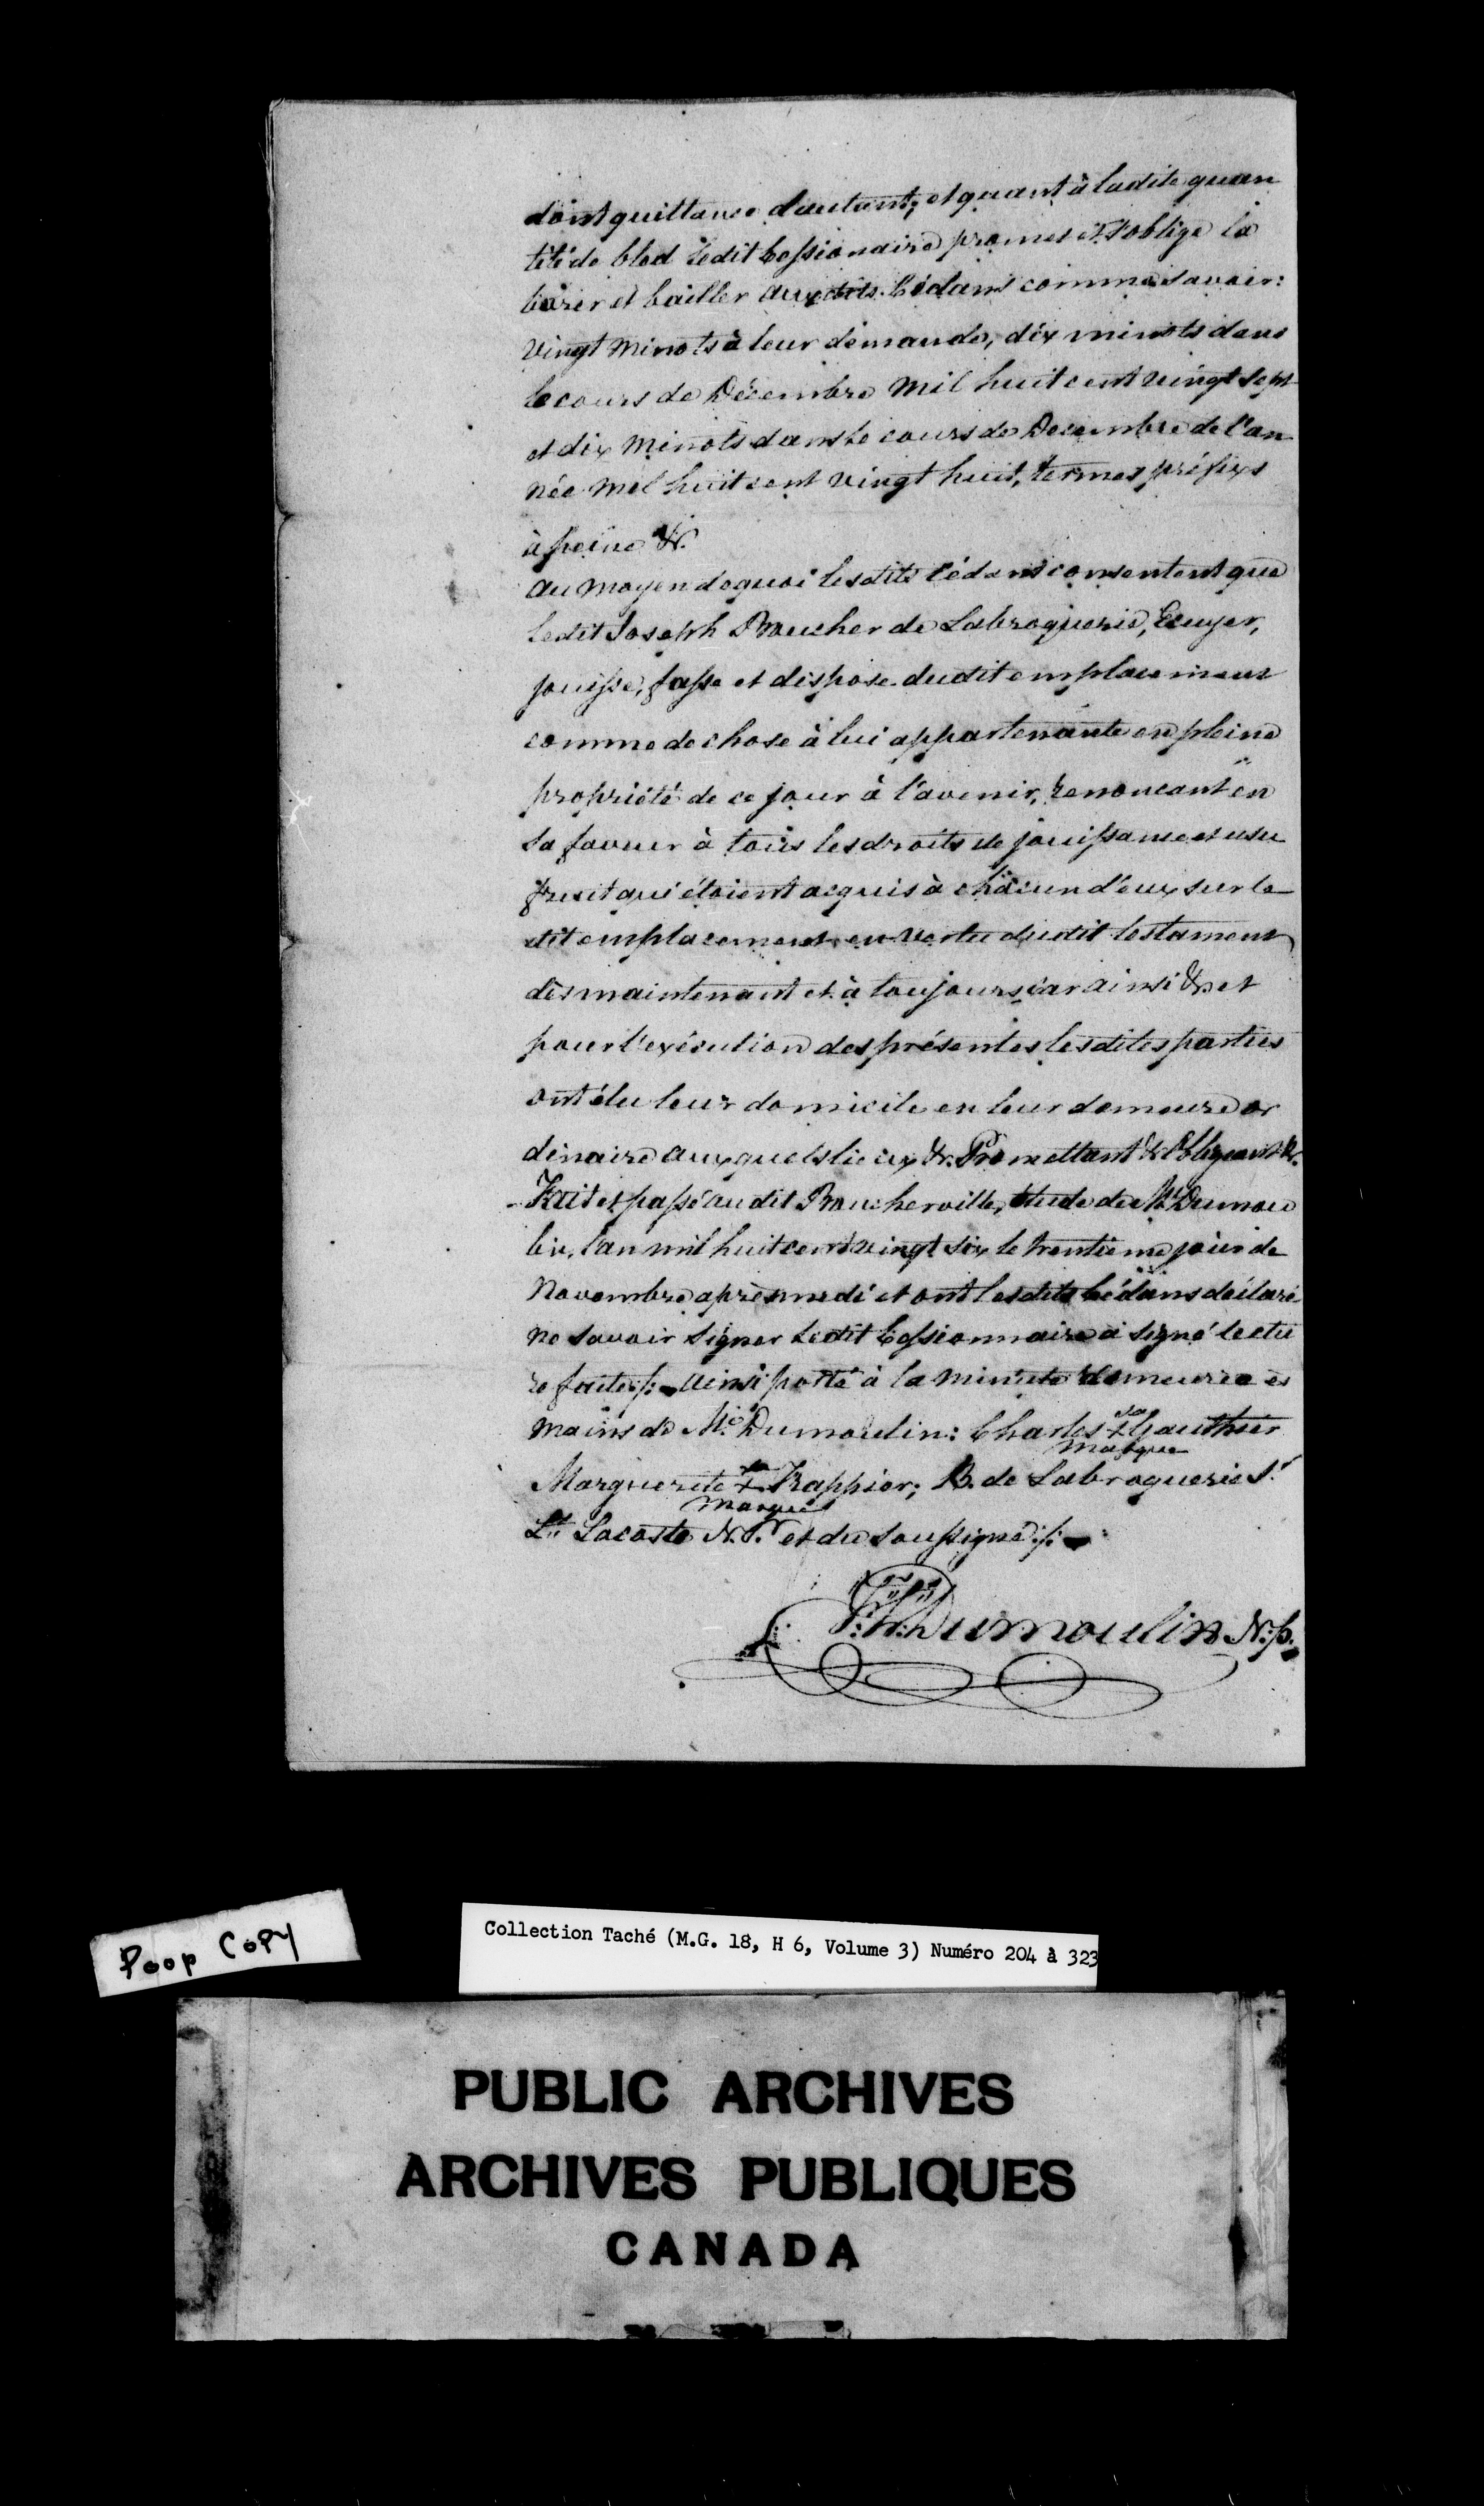 dont quittance d'autant; et quant à ladite quan
tité de bled ledit Cessionaire promet et s'oblige la
livrer et bailler auxdits Cédans comme savoir:
Vingt minots à leur demande, dix minots dans
le cours de Décembre mil huit cent vingt sept
et dix minots dans le cours de Decembre de l'an
née mil huit cent vingt huit, termes préfixs
à peine &c.
Au moyen de quoi lesdits Cédans consentent que
ledit Joseph Boucher de Labroquerie, Ecuyer,
jouisse, fasse et dispose dudit emplacement
comme de chose à lui appartenante en pleine
propriété de ce jour à l'avenir, renoncant en
sa faveur à tous les droits de jouissance et usu
fruit qui étoient acquis à chacun d'eux sur le
dit emplacement en vertu dudit testament
dès maintenant et à toujours; car ainsi &c. et
pour l'exécution des présentes lesdites parties
ont élu leur domicile en leur demeure or
dinaire auxquels lieux &c. Promettant &c. Obligeant &c.
Fait et passé audit Boucherville, étude de Me. Dumou
lin, l'an mil huit cent vingt six le trentieme jour de
Novembre après midi et ont lesdits Cédans déclaré
ne savoir signer ledit Cessionnaire a signé lectu
re faite ./. ainsi porté à la minute demeurée ès
mains de Me. Dumoulin: Charles sa + marque Gauthier
Marguerite sa + marque Frappier; B. de Labroquerie
Lt. Lacoste N.P. et du soussigné ./.
Dumoulin N:p.
Poop Copy
Collection Taché (M.G. 18, H 6, Volume 3) Numéro 204 à 323
PUBLIC ARCHIVES
ARCHIVES PUBLIQUES
CANADA